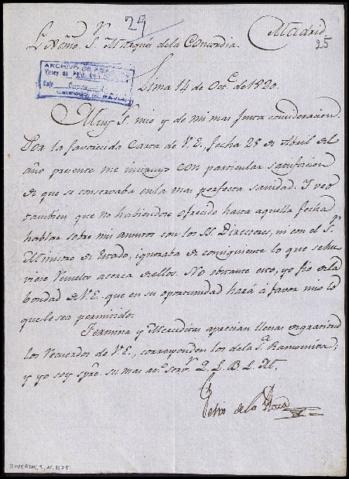 29
Madrid
25
Sr. Marqués de la Concordia.
ARCHIVO DE
Lima 14 de Oct.e de 1820.
Muy S.r mio y de mi mas justa consideracion.
Por la favorecida Carta de V.E. fecha 25 de Abril del
año presente me instruyo con particular satisfaccion
de que se conservaba en la mas perfecta sanidad. Y veo
tambien que no habiendose ofrecido hasta aquella fecha
hablar sobre mi asunto con los SS. Directores, ni con el S.r
Ministro de Estado, ignoraba de consiguiente lo que se hu
viese resuelto acerca de ellos. No obstante esto, yo fio de la
bondad de V.E. que en su oportunidad hará á favor mio lo
que le sea permitido.
Fermina y Merceditas aprecian llenas de gratitud
los recuerdos de V.E., corresponden los de la S.a Ramoncita;
y yo soy spre. su mas at.o serv.r Q.S.B.L.M.
Pedro de la Rosa
DIVERSOS